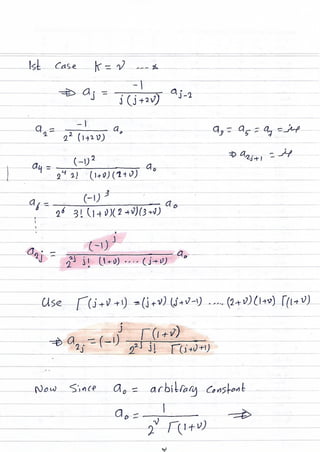 1st case K = ν ---*
⇒ aⱼ = -1 / j(j+2ν) aⱼ₋₂
a₂ = -1 / 2² (1+ν) a₀ a₁ = a₅ = a₇ = صفر
⇒ a₂ⱼ₊₁ = صفر
a₄ = (-1)² / 2⁴ 2! (1+ν)(2+ν) a₀
a₆ = (-1)³ / 2⁶ 3! (1+ν)(2+ν)(3+ν) a₀
⋮
a₂ⱼ = (-1)ʲ / 2²ʲ j! (1+ν) ---- (j+ν) a₀
Use Γ(j+ν+1) = (j+ν)(j+ν-1) ..... (2+ν)(1+ν) Γ(1+ν)
⇒ a₂ⱼ = (-1)ʲ Γ(1+ν) / 2²ʲ j! Γ(j+ν+1)
Now Since a₀ = arbitrary constant
a₀ = 1 / 2^ν Γ(1+ν) ⇒